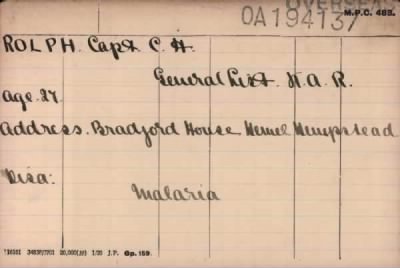 OVERSEAS
OA19413/
M.P.C. 483.
ROLPH. Capt C. H.
General List. K. A. R.
Age. 27.
Address. Bradford House Hemel Hempstead
Disa:
Malaria
116161 3483P/7701 20,000(19) 1/20 J.P. Gp.159.